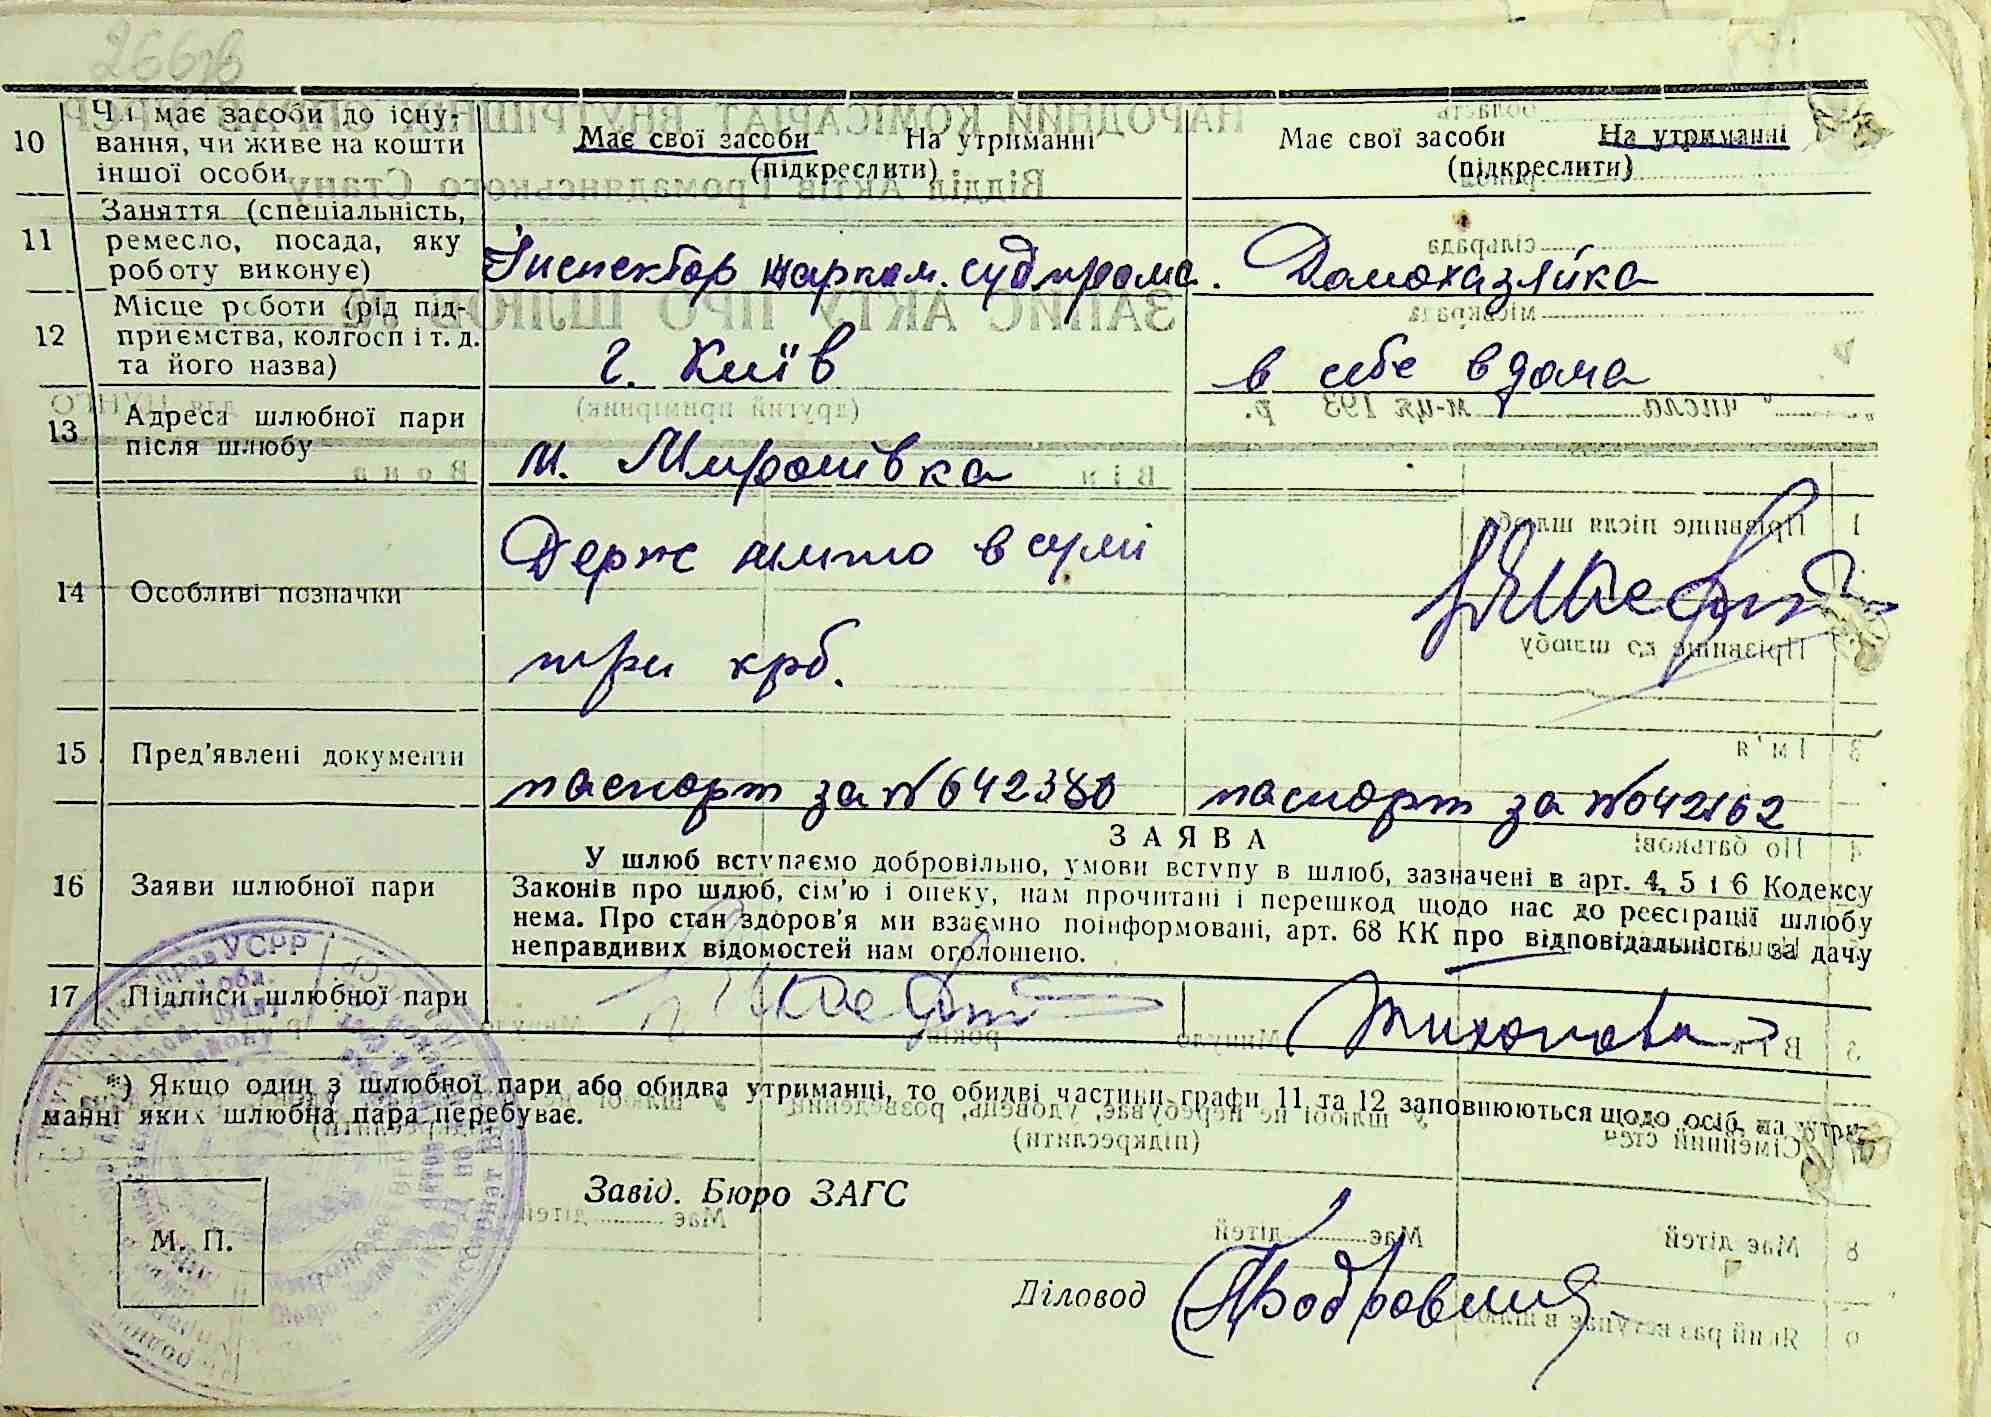 10 Чи має засоби до існу-
вання, чи живе на кошти
іншої особи
Має свої засоби На утриманні
(підкреслити)
Має свої засоби На утриманні
(підкреслити)
11 Заняття (спеціальність,
ремесло, посада, яку
роботу виконує)
Інспектор нарком. судпрома.
Домохазяйка
12 Місце роботи (рід під-
приємства, колгосп і т. д.
та його назва)
г. Київ
в себе вдома
13 Адреса шлюбної пари
після шлюбу
м. Миронівка
14 Особливі позначки
Держ мито в сумі
три крб.
15 Пред'явлені документи
паспорт за № 642380
паспорт за № 642162
16 Заяви шлюбної пари
ЗАЯВА
У шлюб вступаємо добровільно, умови вступу в шлюб, зазначені в арт. 4, 5 і 6 Кодексу
Законів про шлюб, сім'ю і опеку, нам прочитані і перешкод щодо нас до реєстрації шлюбу
нема. Про стан здоров'я ми взаємно поінформовані, арт. 68 КК про відповідальність за дачу
неправдивих відомостей нам оголошено.
17 Підписи шлюбної пари
Тихонова
*) Якщо один з шлюбної пари або обидва утриманці, то обидві частини графи 11 та 12 заповнюються щодо осіб, на утри-
манні яких шлюбна пара перебуває.
Завід. Бюро ЗАГС
М. П.
Діловод